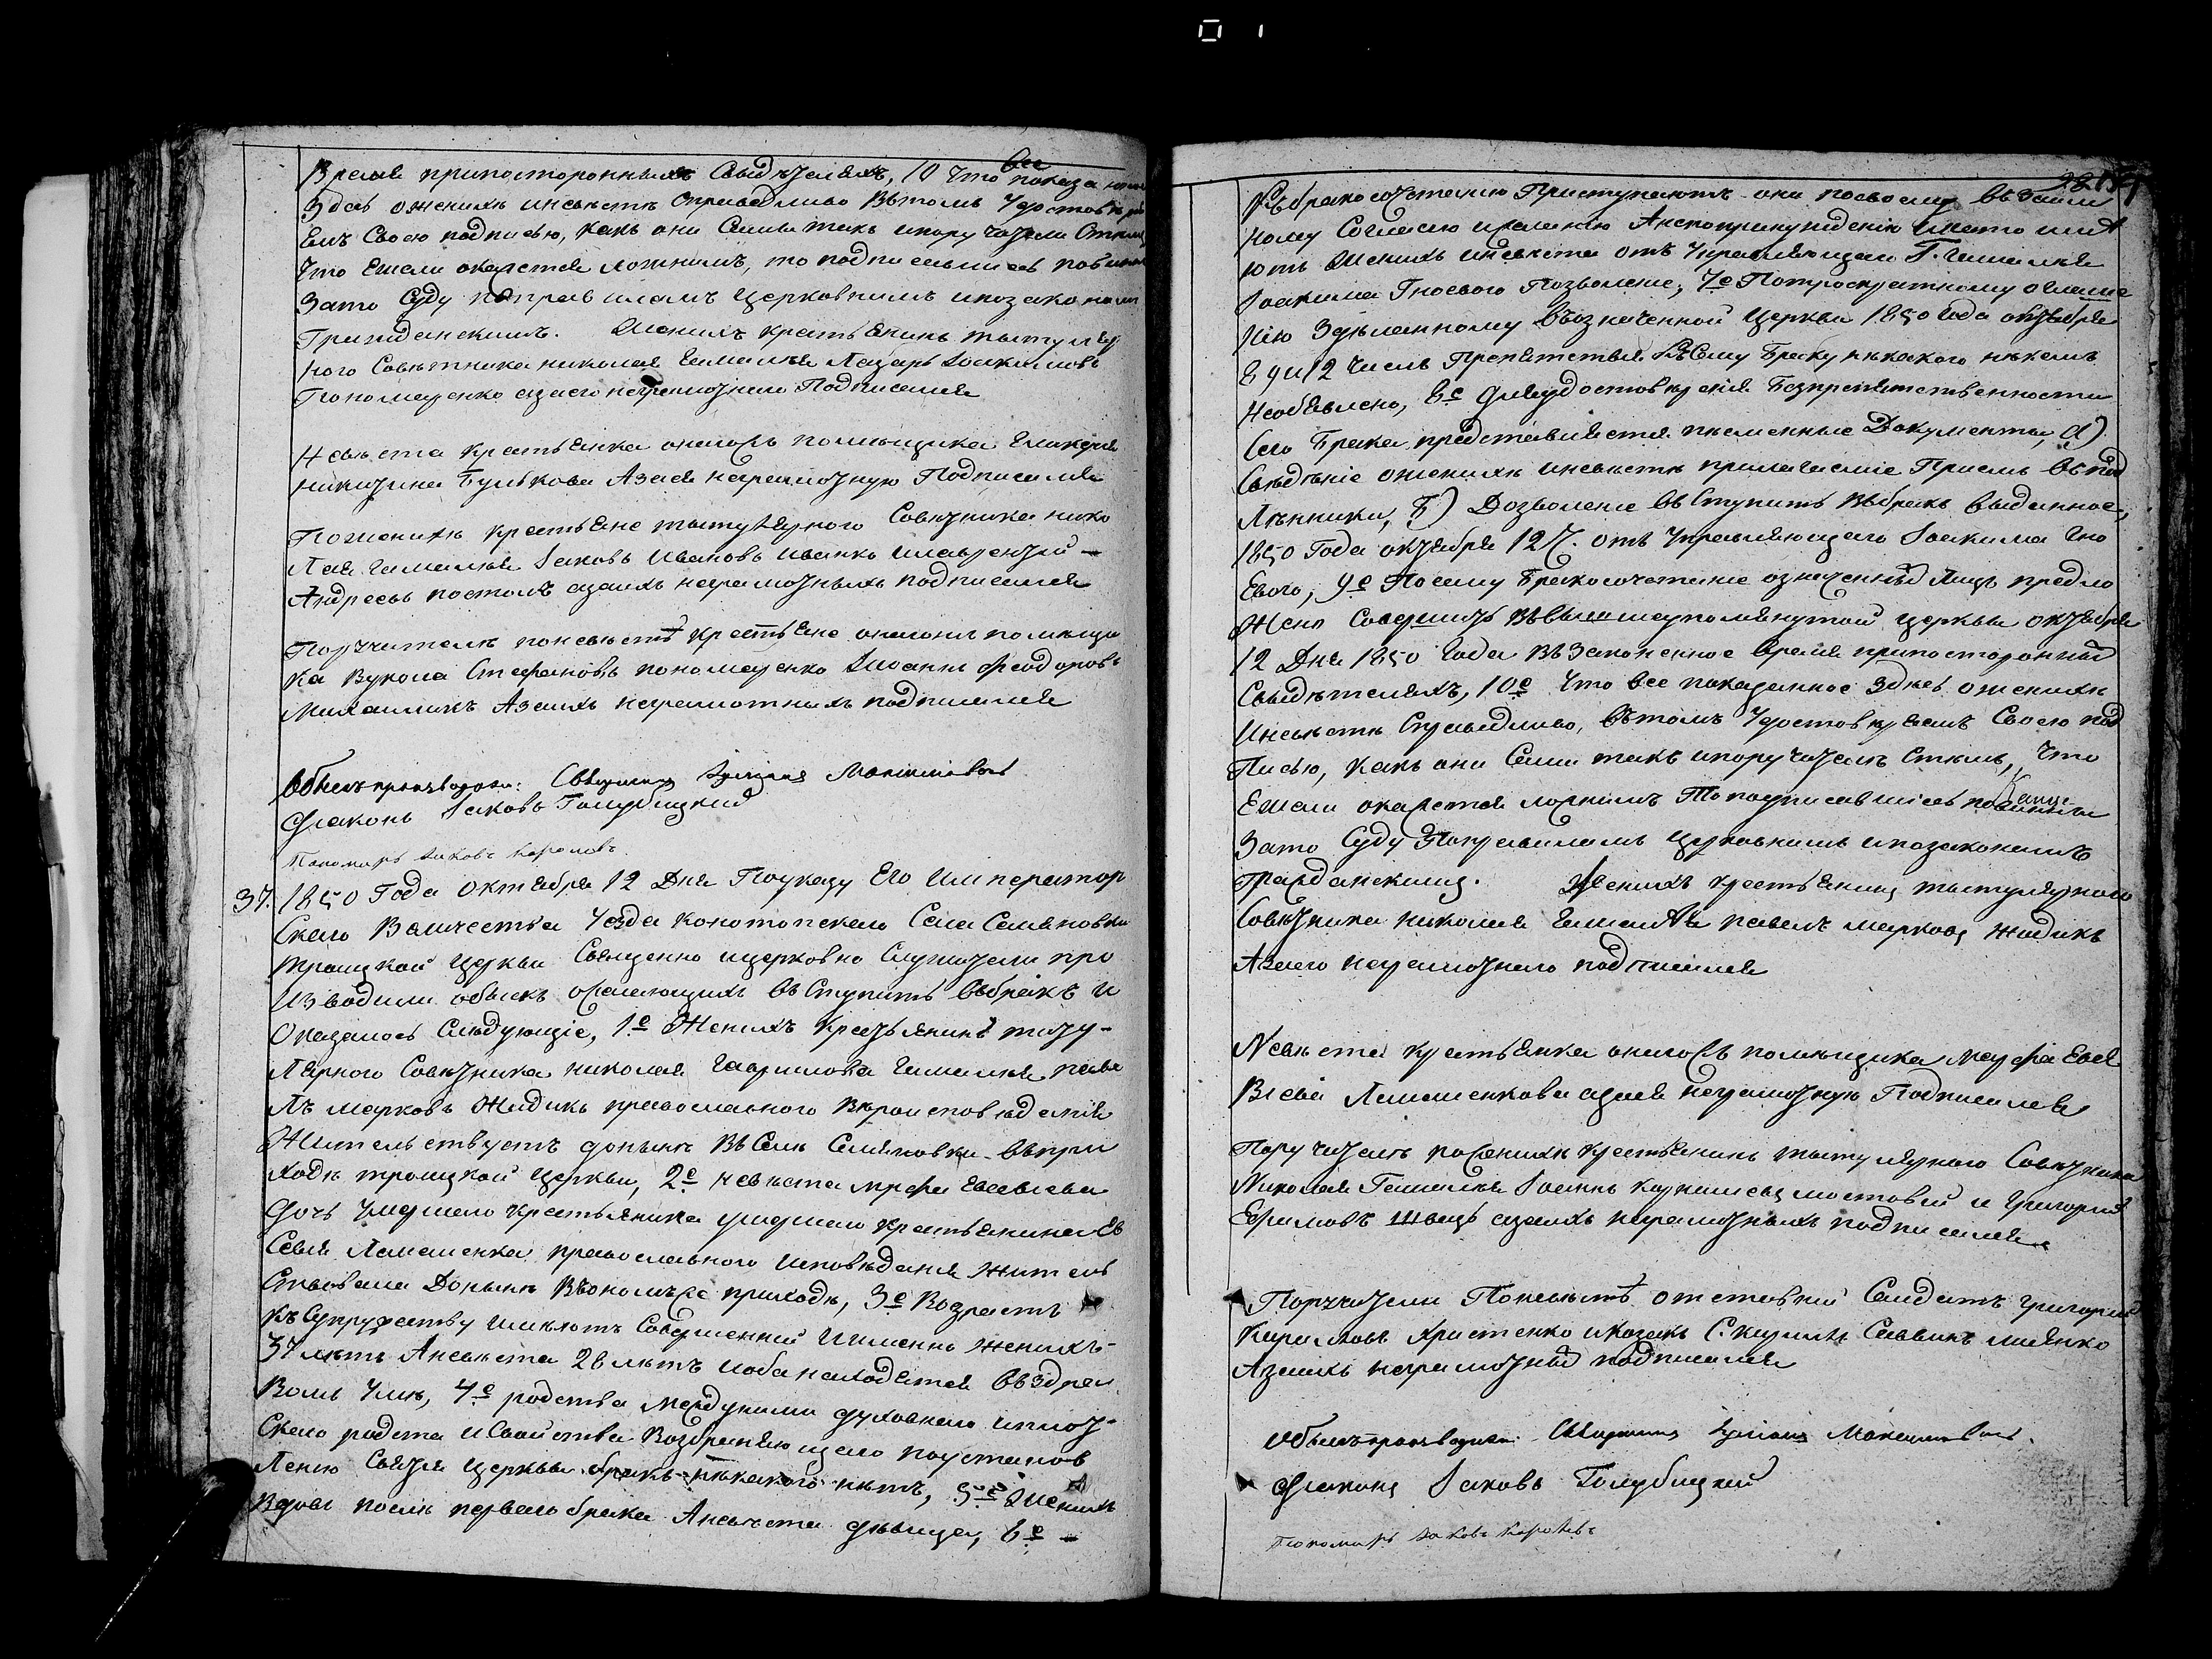 время припостороннихъ свидѣтеляхъ, 10 что все показанное
здѣсь оженихѣ иневѣстѣ справедливо вѣтомъ удостовѣря
емъ своею подписью, какъ они сами такъ ипоручители стѣмъ
что ежели окажется ложнымъ, то подписавшiесь повинны
зато суду поправиламъ церковнымъ ипозаконамъ
гражданскимъ. Женихъ крестьянинъ титуляр
ного Совѣтника николая Гамалѣя Лазарь Іоакимовъ
Пономаренко азаего неграмотнаго Подписался
Невѣста крестьянка оногожъ помѣщика Гликерiя
никитина Булькова Азаея неграмотную Подписался
Поженихѣ крестьяне титулярного Совѣтника нико
лая Гамалѣя Іаковъ Ивановъ Иванко илаврентiй
Андреевъ постолъ азаихъ неграмотныхъ подписался
Поручители поневѣстѣ крестьяне оногожъ помѣщи
ка Вукола Стефановъ пономаренко Іоаннъ феодоровъ
Михаиликъ Азаихъ неграмотныхъ подписался
Обыскъ производили: Священникъ Іулiанъ Максимовичъ
Дiаконъ Іаковъ Голубицкiй
Пономарь Іаковъ Королевъ
37. 1850 Года октября 12 Дня Поуказу Его Император
скаго Величества уезда конотопскаго Села Семяновки
троицкой церкви Священно ицерковно служители про
изводили обыскъ ожелающихъ вступить вбракъ и
оказалось слѣдующiе, 1е Женихъ крестьянинъ титу-
лярного Совѣтника николая Гаврилова Гамалѣя паве
лъ марковъ Жидикъ православного вѣроисповѣданiя
Жительствуетъ донынѣ вСелѣ Семяновки впри
ходѣ троицкой церкви, 2е невѣста мрфа Евсевiева
дочь умершаго крестьянина умершаго крестьянина Ев
севiя Ламашенка православного исповѣданiя житель
ствовала Донынѣ вономъже приходѣ, 3е Возрастъ
къ супружеству имѣютъ совершенный Именно женихъ-
37 лѣтъ Аневѣста 28 лѣтъ иоба находятся вздра
вомъ умѣ, 4е родства междуними духовнаго иплот
скаго родства иСвойства возбраняющаго поустанов
ленiю Святыя церкви бракъ никакого нѣтъ, 5е Женихъ
вдовъ послѣ перваго брака Аневѣста дѣвица, 6е
къбракосочетанiю Приступаютъ они посвоему взаим
ному Согласiю ижеланiю Анепопринужденiю инато имѣ
ютъ Женихъ иневѣста отъ управляющаго Г. Гамалѣя
Іоакима Гноевого Позволенiе, 7е Потроекратному оглаше
нiю здѣланному въозначенной церкви 1850 года октября
8 9 и 12 числъ Препятствiя къСему браку никакого никемъ
необъявлено, 8е Дляудостовѣренiя безпрепятственности
сего брака представляется писменные Документы, а)
Свѣдѣнiе оженихѣ иневѣстѣ прилагаемiе присемъ въпод
линники, б) Дозволенiе вступить въбракъ выданное,
1850 года октября 12 Д. отъ управляющаго Іоакима гно
евого, 9е Посему бракосочетанiе означенныхъ лицъ предло
жено совершить въвышеупомянутой церкви октября
12 Дня 1850 года взаконенное время припостороннихъ
Свидѣтеляхъ, 10е что все показанное здѣсь оженихѣ
иневѣстѣ справедливо, вътомъ удостовѣряемъ Своею под
писью, какъ они Сами такъ ипоручители стѣмъ, что
ежели окажется ложнимъ то подписавшiесь повинны
зато суду поправиламъ церковнымъ ипозаконамъ
гражданскимъ. Женихъ крестьянинъ титулярного
Совѣтника николая Гамалѣя павелъ марковъ Жидикъ
Азаего неграмотнаго подписался
Невѣста крестьянка оногожъ помѣщика марфа Евсе
вiева Ламашенкова азаея неграмотную Подписался
Поручители поженихѣ крестьянинъ титулярного Совѣтника
Николая Гамалѣя Іоаннъ корнилiевъ мостовiй и Григорiй
Ефимовъ Швецъ азаихъ неграмотныхъ подписался
Поручители Поневѣстѣ отставный Салдатъ григорий
кириловъ Христенко икозакъ
Азаихъ неграмотныхъ подписался
Обыскъ производили: Священникъ Іулiанъ Максимовичъ.
Дiаконъ Іаковъ Голубицкiй
Пономарь Іаковъ Королевъ